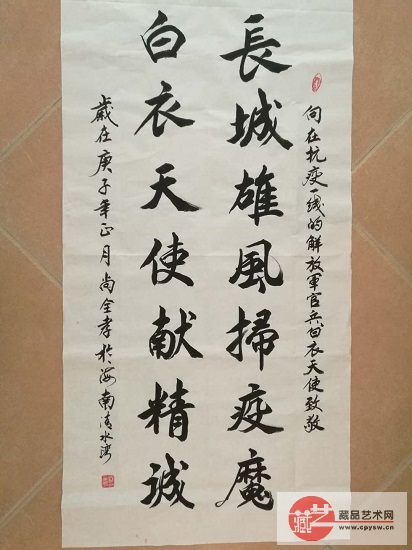 向在抗疫一线的解放軍官兵白衣天使致敬
長城雄風掃疫魔
白衣天使献精誠
歲在庚子年正月尚全孝於海南清水湾
藏艺
藏品艺术网
www.cpysw.cn